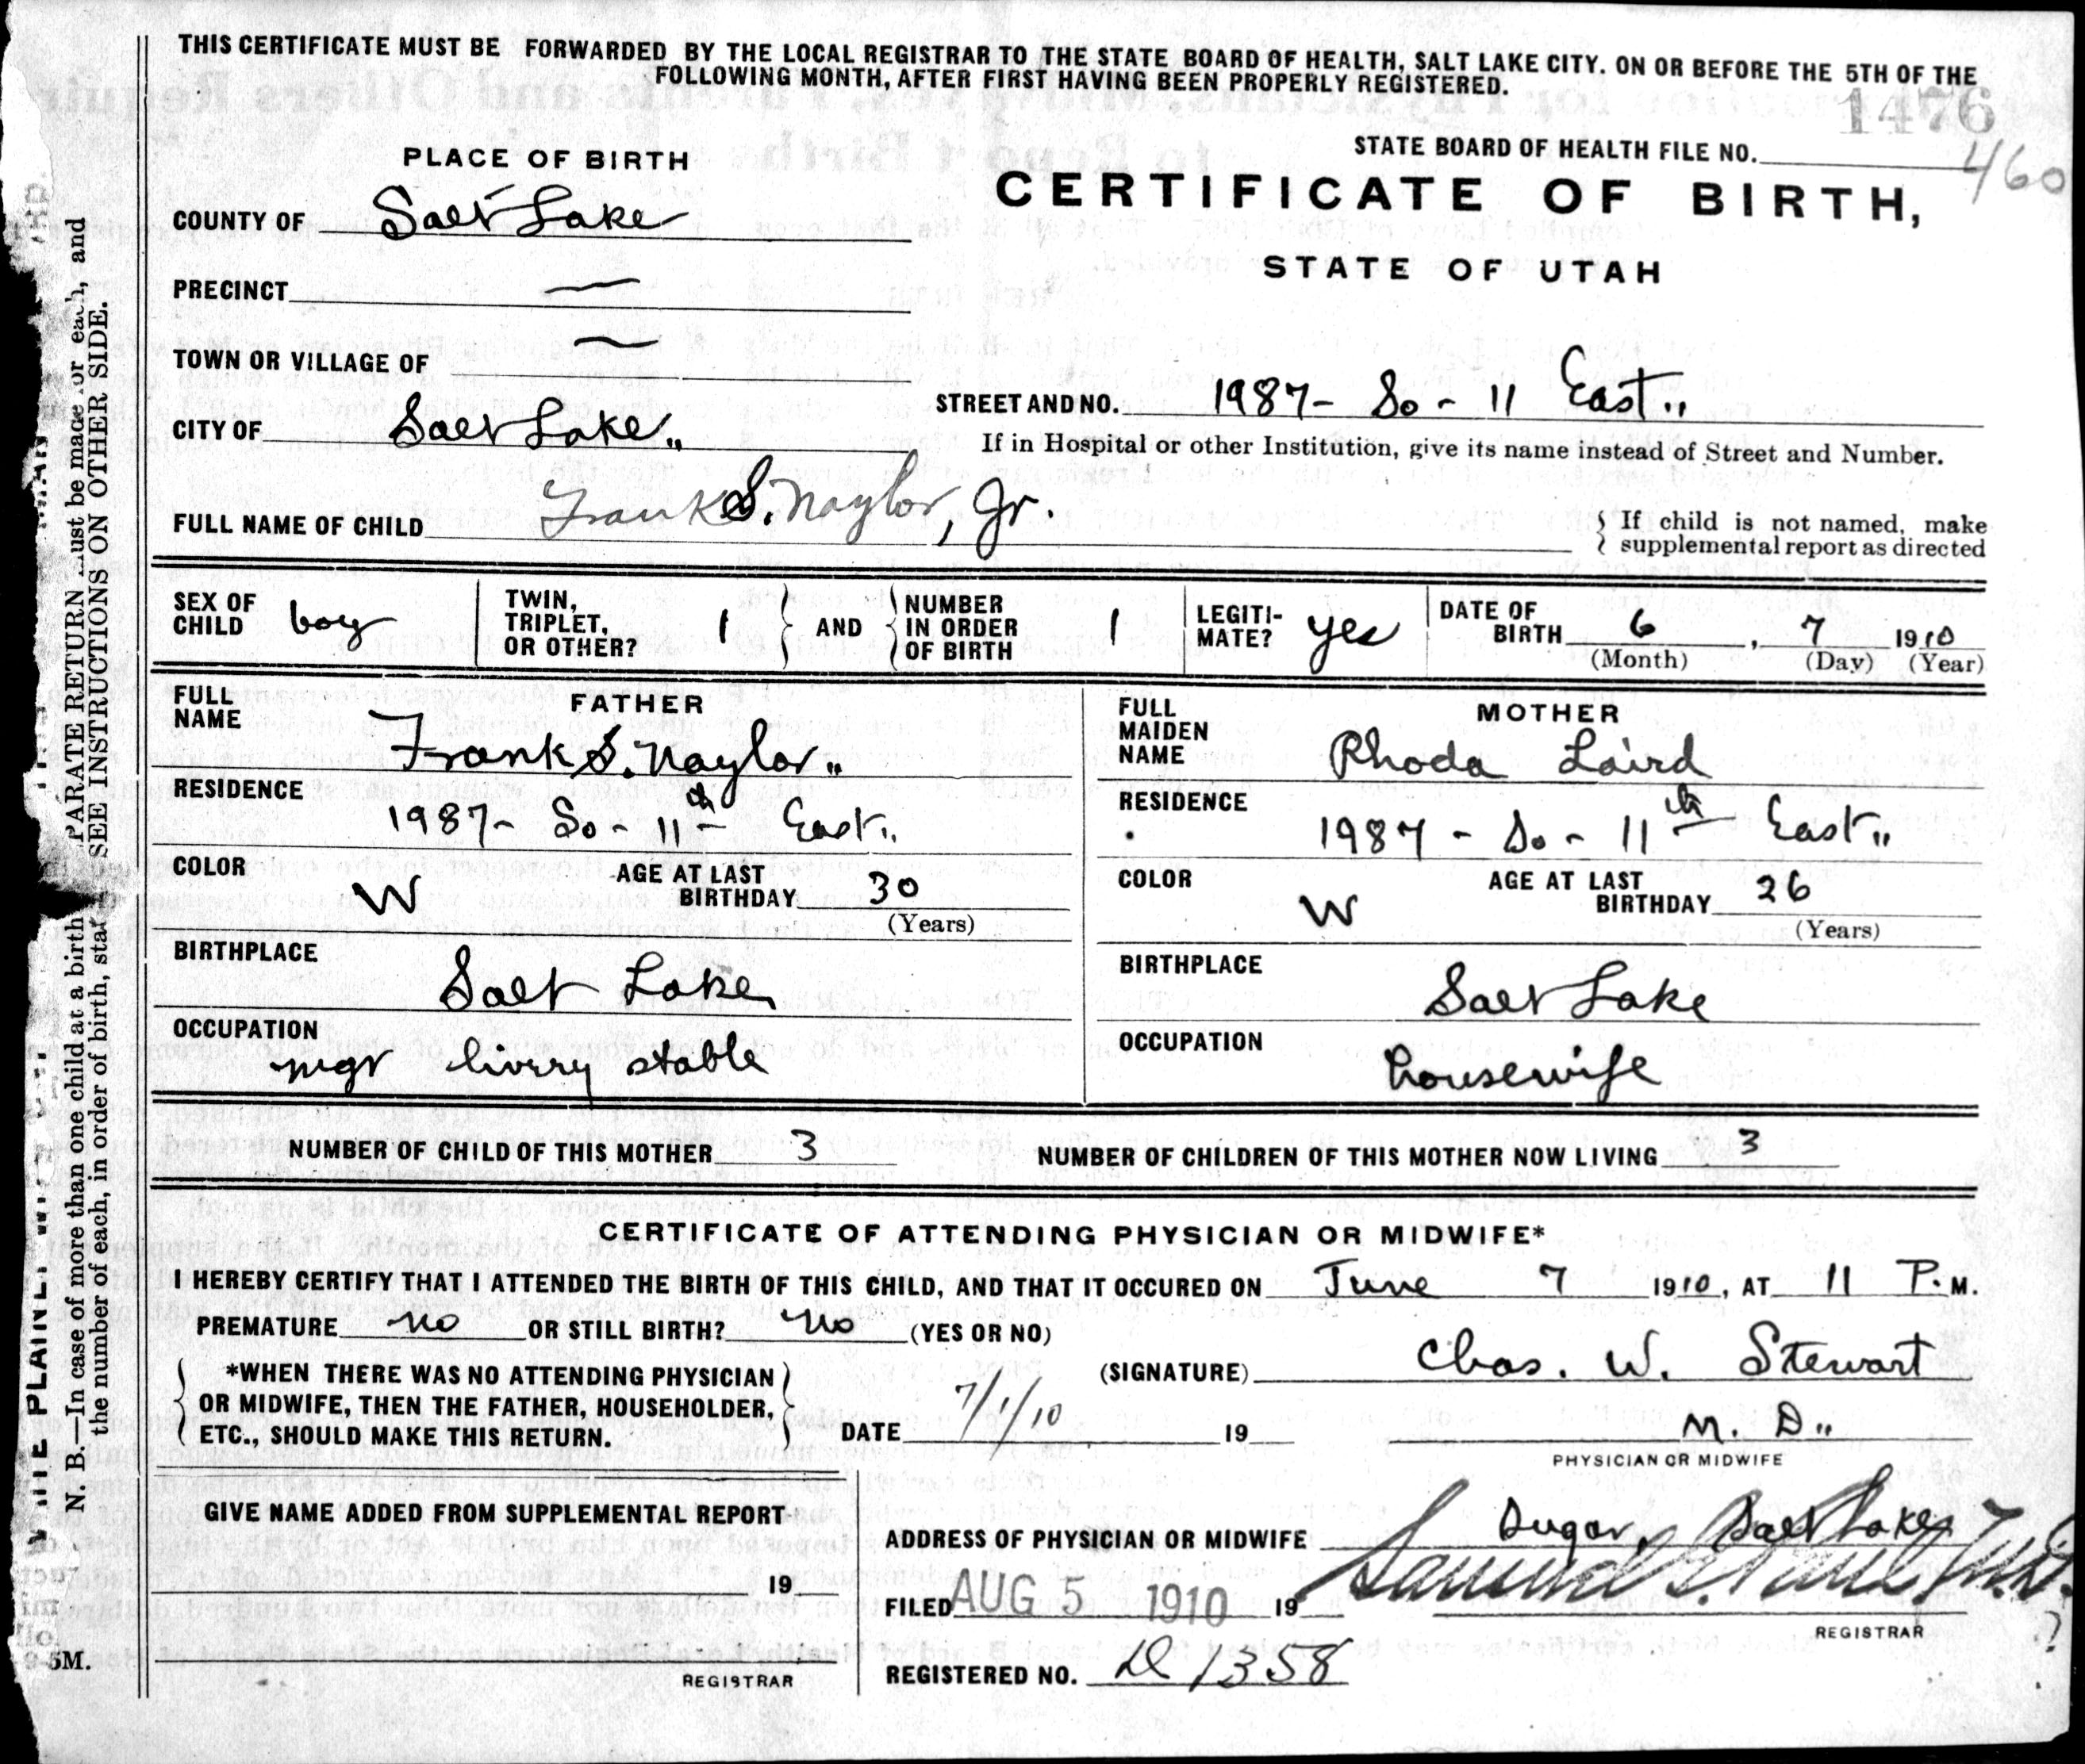 THIS CERTIFICATE MUST BE FORWARDED BY THE LOCAL REGISTRAR TO THE STATE BOARD OF HEALTH, SALT LAKE CITY. ON OR BEFORE THE 5TH OF THE
FOLLOWING MONTH, AFTER FIRST HAVING BEEN PROPERLY REGISTERED.
1476
STATE BOARD OF HEALTH FILE NO. 460
PLACE OF BIRTH
CERTIFICATE OF BIRTH,
STATE OF UTAH
COUNTY OF Salt Lake
PRECINCT —
TOWN OR VILLAGE OF —
CITY OF Salt Lake
STREET AND NO. 1987 - So - 11 East
If in Hospital or other Institution, give its name instead of Street and Number.
FULL NAME OF CHILD Frank S. Naylor, Jr.
If child is not named, make
supplemental report as directed
SEX OF CHILD boy
TWIN, TRIPLET, OR OTHER? 1 AND NUMBER IN ORDER OF BIRTH 1
LEGITI-MATE? yes
DATE OF BIRTH 6, 7 1910
(Month) (Day) (Year)
FATHER
FULL NAME Frank S. Naylor
RESIDENCE 1987 - So - 11th East
COLOR W AGE AT LAST BIRTHDAY 30
(Years)
BIRTHPLACE Salt Lake
OCCUPATION mgr livery stable
MOTHER
FULL MAIDEN NAME Rhoda Laird
RESIDENCE 1987 - So - 11th East
COLOR W AGE AT LAST BIRTHDAY 26
(Years)
BIRTHPLACE Salt Lake
OCCUPATION housewife
NUMBER OF CHILD OF THIS MOTHER 3 NUMBER OF CHILDREN OF THIS MOTHER NOW LIVING 3
CERTIFICATE OF ATTENDING PHYSICIAN OR MIDWIFE*
I HEREBY CERTIFY THAT I ATTENDED THE BIRTH OF THIS CHILD, AND THAT IT OCCURED ON June 7 1910, AT 11 P. M.
PREMATURE no OR STILL BIRTH? no (YES OR NO)
*WHEN THERE WAS NO ATTENDING PHYSICIAN
OR MIDWIFE, THEN THE FATHER, HOUSEHOLDER,
ETC., SHOULD MAKE THIS RETURN.
(SIGNATURE) Chas. W. Stewart
DATE 7/1/10 19 M. D.
PHYSICIAN OR MIDWIFE
GIVE NAME ADDED FROM SUPPLEMENTAL REPORT
19
REGISTRAR
ADDRESS OF PHYSICIAN OR MIDWIFE Sugar, Salt Lake
FILED AUG 5 1910 19
REGISTRAR
REGISTERED NO. D 1358
N. B.—In case of more than one child at a birth PARATE RETURN must be made for each, and
the number of each, in order of birth, stat
SEE INSTRUCTIONS ON OTHER SIDE.
5M.